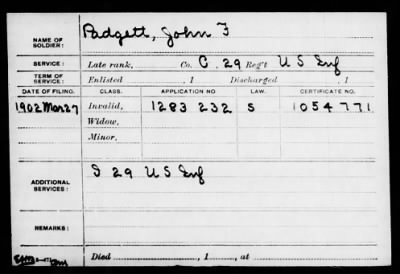 NAME OF SOLDIER: Padgett, John F
SERVICE: Late rank, Co. C, 29 Reg't U S Inf
TERM OF SERVICE: Enlisted , 1 Discharged , 1
DATE OF FILING. CLASS. APPLICATION NO. LAW. CERTIFICATE NO.
1902 Mar 27 Invalid, 1283 232 S 1054 771
Widow,
Minor,
ADDITIONAL SERVICES: S 29 U S Inf
REMARKS:
Died , 1 , at